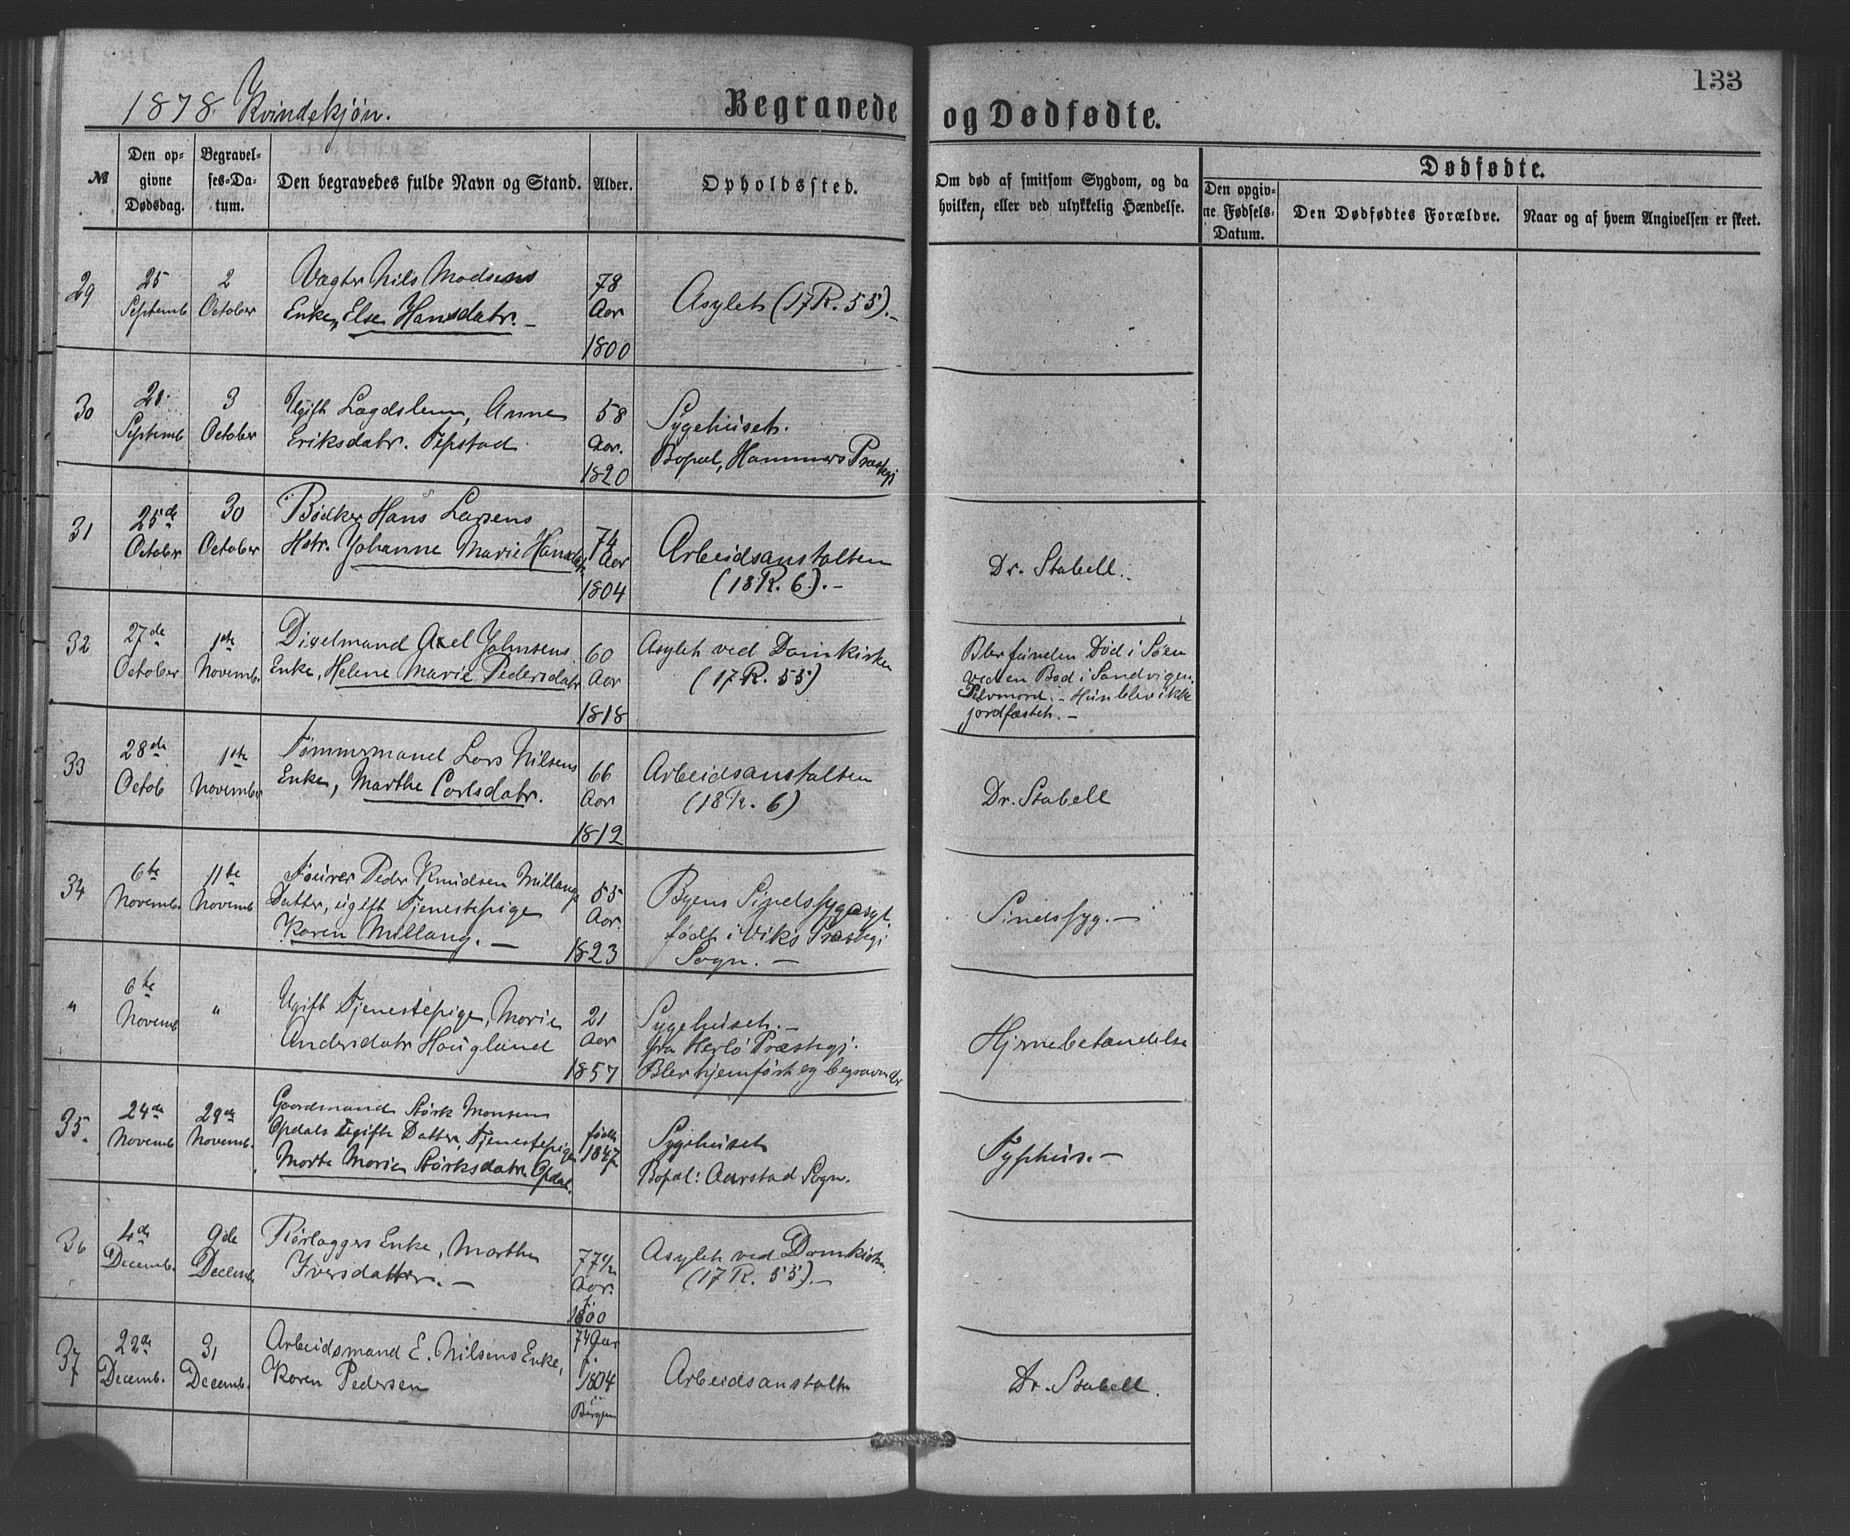 133
1878. Kvindekjøn.
Begravede og Dødfødte.
№
Den op-
givne
Dødsdag.
Begravel-
ses-Da-
tum.
Den begravedes fulde Navn og Stand.
Alder.
Opholdssted.
Om død af smitsom Sygdom, og da
hvilken, eller ved ulykkelig Hændelse.
Dødfødte.
Den opgiv-
ne Fødsels-
Datum.
Den Dødfødtes Forældre.
Naar og af hvem Angivelsen er skeet.
29
25
Septemb
2
October
Vægter Nils Madsens
Enke, Else Hansdatr. –
78
Aar
1800
Asylet (17 R. 55). –
30
Septemb
3
October
Ugift Lægdslem, Anne
Eriksdatr.
58
Aar.
1820
Sygehuset.
Bopæl, Hammers Præstegj
31
25de
October
30
October
Bødker Hans Larsens
Hstr. Johanne Marie Hansdatr
74
Aar
1804
Arbeidsanstalten
(18 R. 6). –
Dr. Stabell.
32
27de
October
1ste
Novemb.
Axel Johnsens
Enke, Helene Marie Pedersdatr
60
Aar
1818
Asylet ved Domkirken
(17 R. 55)
Blev funden Død i Søen
ved en Bod i Sandvigen.
Selvmord. – Hun blev ikke
jordfæstet. –
33
28de
Octob
1ste
November
Tømmermand Lars Nilsens
Enke, Marthe Carlsdatr.
66
Aar
1812
Arbeidsanstalten
(18 R. 6)
Dr. Stabell
34
6te
Novemb.
11te
Novemb
Peder Knudsen Millangs
Datter, ugift Tjenestepige
Karen Millang. –
55
Aar.
1823
Byens Sindssygeasyl
født i Viks Præstegj
Sogn. –
Sindssyg. –
"
6te
Novemb
"
Ugift Tjenestepige, Marie
Andersdatr Hougland
21
Aar
1857
Sygehuset. –
fra Herlø Præstegj.
Blev hjemført og begravet der
Hjernebetændelse
35
24de
Novemb
29de
Novemb.
Gaardmand Størk Monsen
Opdals ugifte Datter, Tjenestepige
Marte Marie Størksdatr Opdal.
født
1847
Sygehuset
Bopæl: Aarstad Sogn.
Typhus. –
36
4de
Decemb.
9de
Decemb
Rørlæggers Enke, Marthe
Iversdatter. –
77 1/2
Aar.
f.
1800
Asylet ved Domkirken.
(17 R. 55). –
37
22de
Decemb.
31
Decemb.
Arbeidsmand E. Nilsens Enke,
Karen Pedersen
74 Aar
f.
1804
i
Bergen
Arbeidsanstalten
Dr. Stabell.